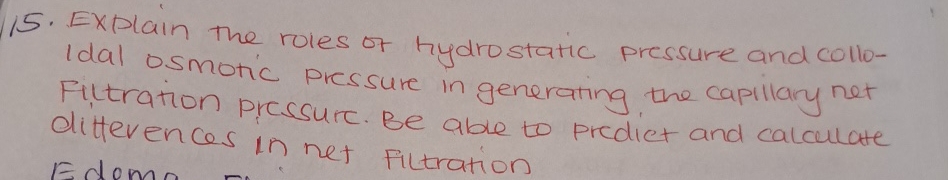 15. Explain the roles of hydrostatic pressure and collo-
idal osmotic pressure in generating the capillary net
Filtration pressure. Be able to predict and calculate
differences in net Filtration
Edema